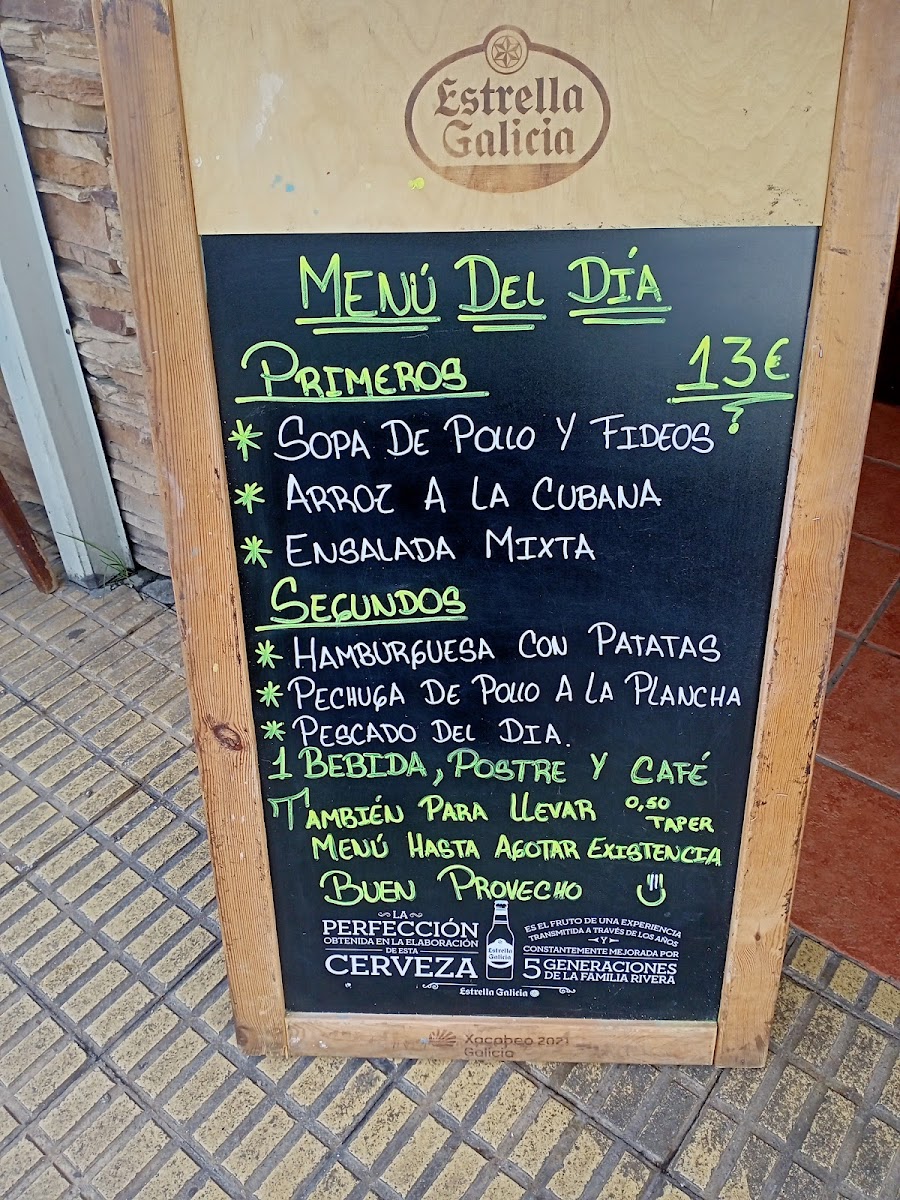 Estrella
Galicia
MENÚ DEL DÍA
PRIMEROS 13€
* SOPA DE POLLO Y FIDEOS
* ARROZ A LA CUBANA
* ENSALADA MIXTA
SEGUNDOS
* HAMBURGUESA CON PATATAS
* PECHUGA DE POLLO A LA PLANCHA
* PESCADO DEL DIA.
1 BEBIDA, POSTRE Y CAFÉ
TAMBIÉN PARA LLEVAR 0,50 TAPER
MENÚ HASTA AGOTAR EXISTENCIA
BUEN PROVECHO
LA
PERFECCIÓN
OBTENIDA EN LA ELABORACIÓN
DE ESTA
CERVEZA
Estrella
Galicia
ES EL FRUTO DE UNA EXPERIENCIA
TRANSMITIDA A TRAVÉS DE LOS AÑOS
Y
CONSTANTEMENTE MEJORADA POR
5 GENERACIONES
DE LA FAMILIA RIVERA
Estrella Galicia
Xacobeo 2021
Galicia